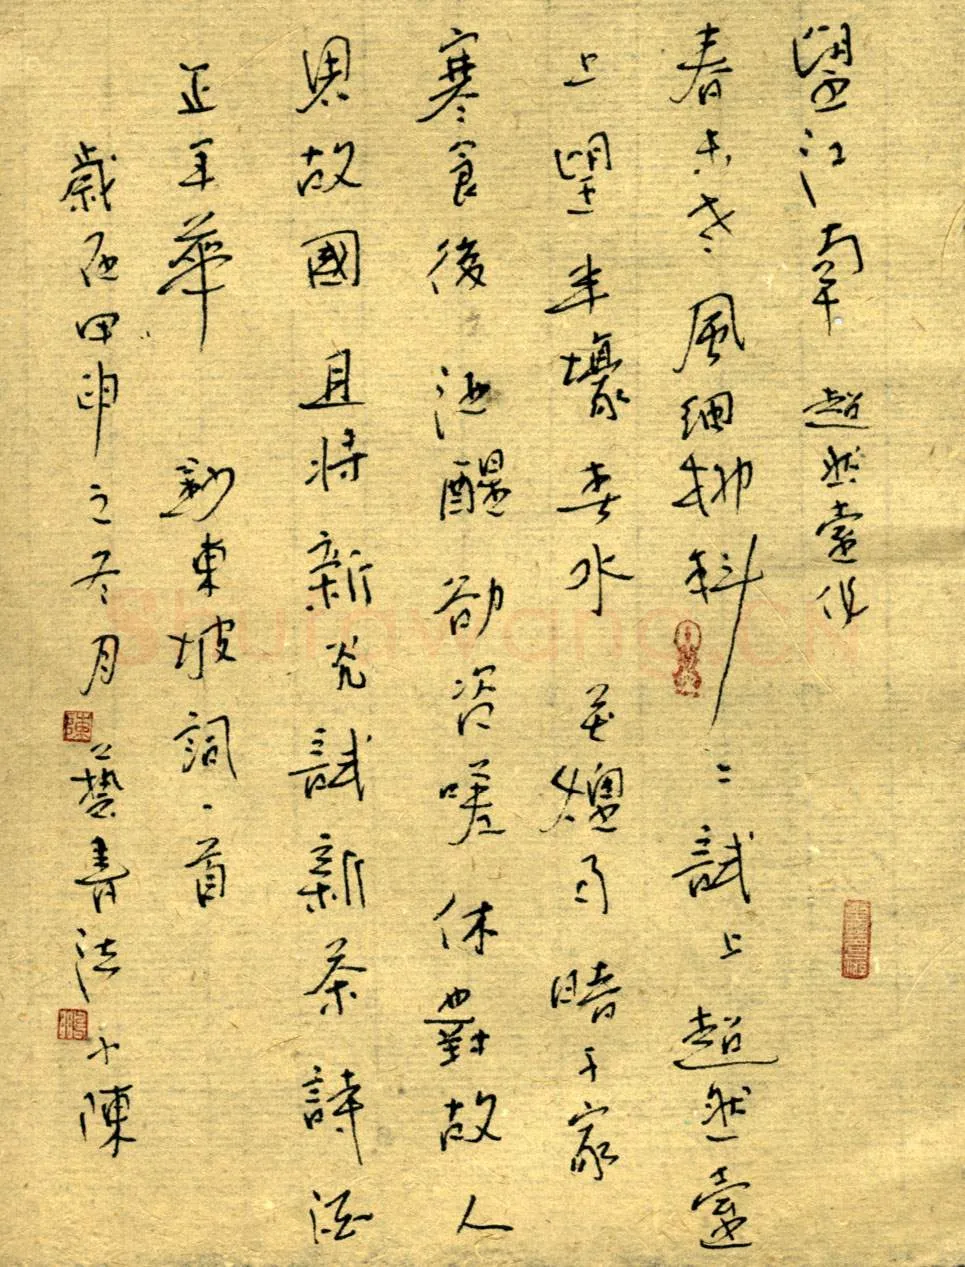 望江南 超然臺作
春未老 風細柳斜々試上超然臺
上望半壕春水花煙雨暗千家
寒食後酒醒卻咨嗟休對故人
思故國且將新火試新茶詩酒
正年華 鈔東坡詞一首
歲在甲申之冬月 書法 小陳
陳
Shufawang.CN